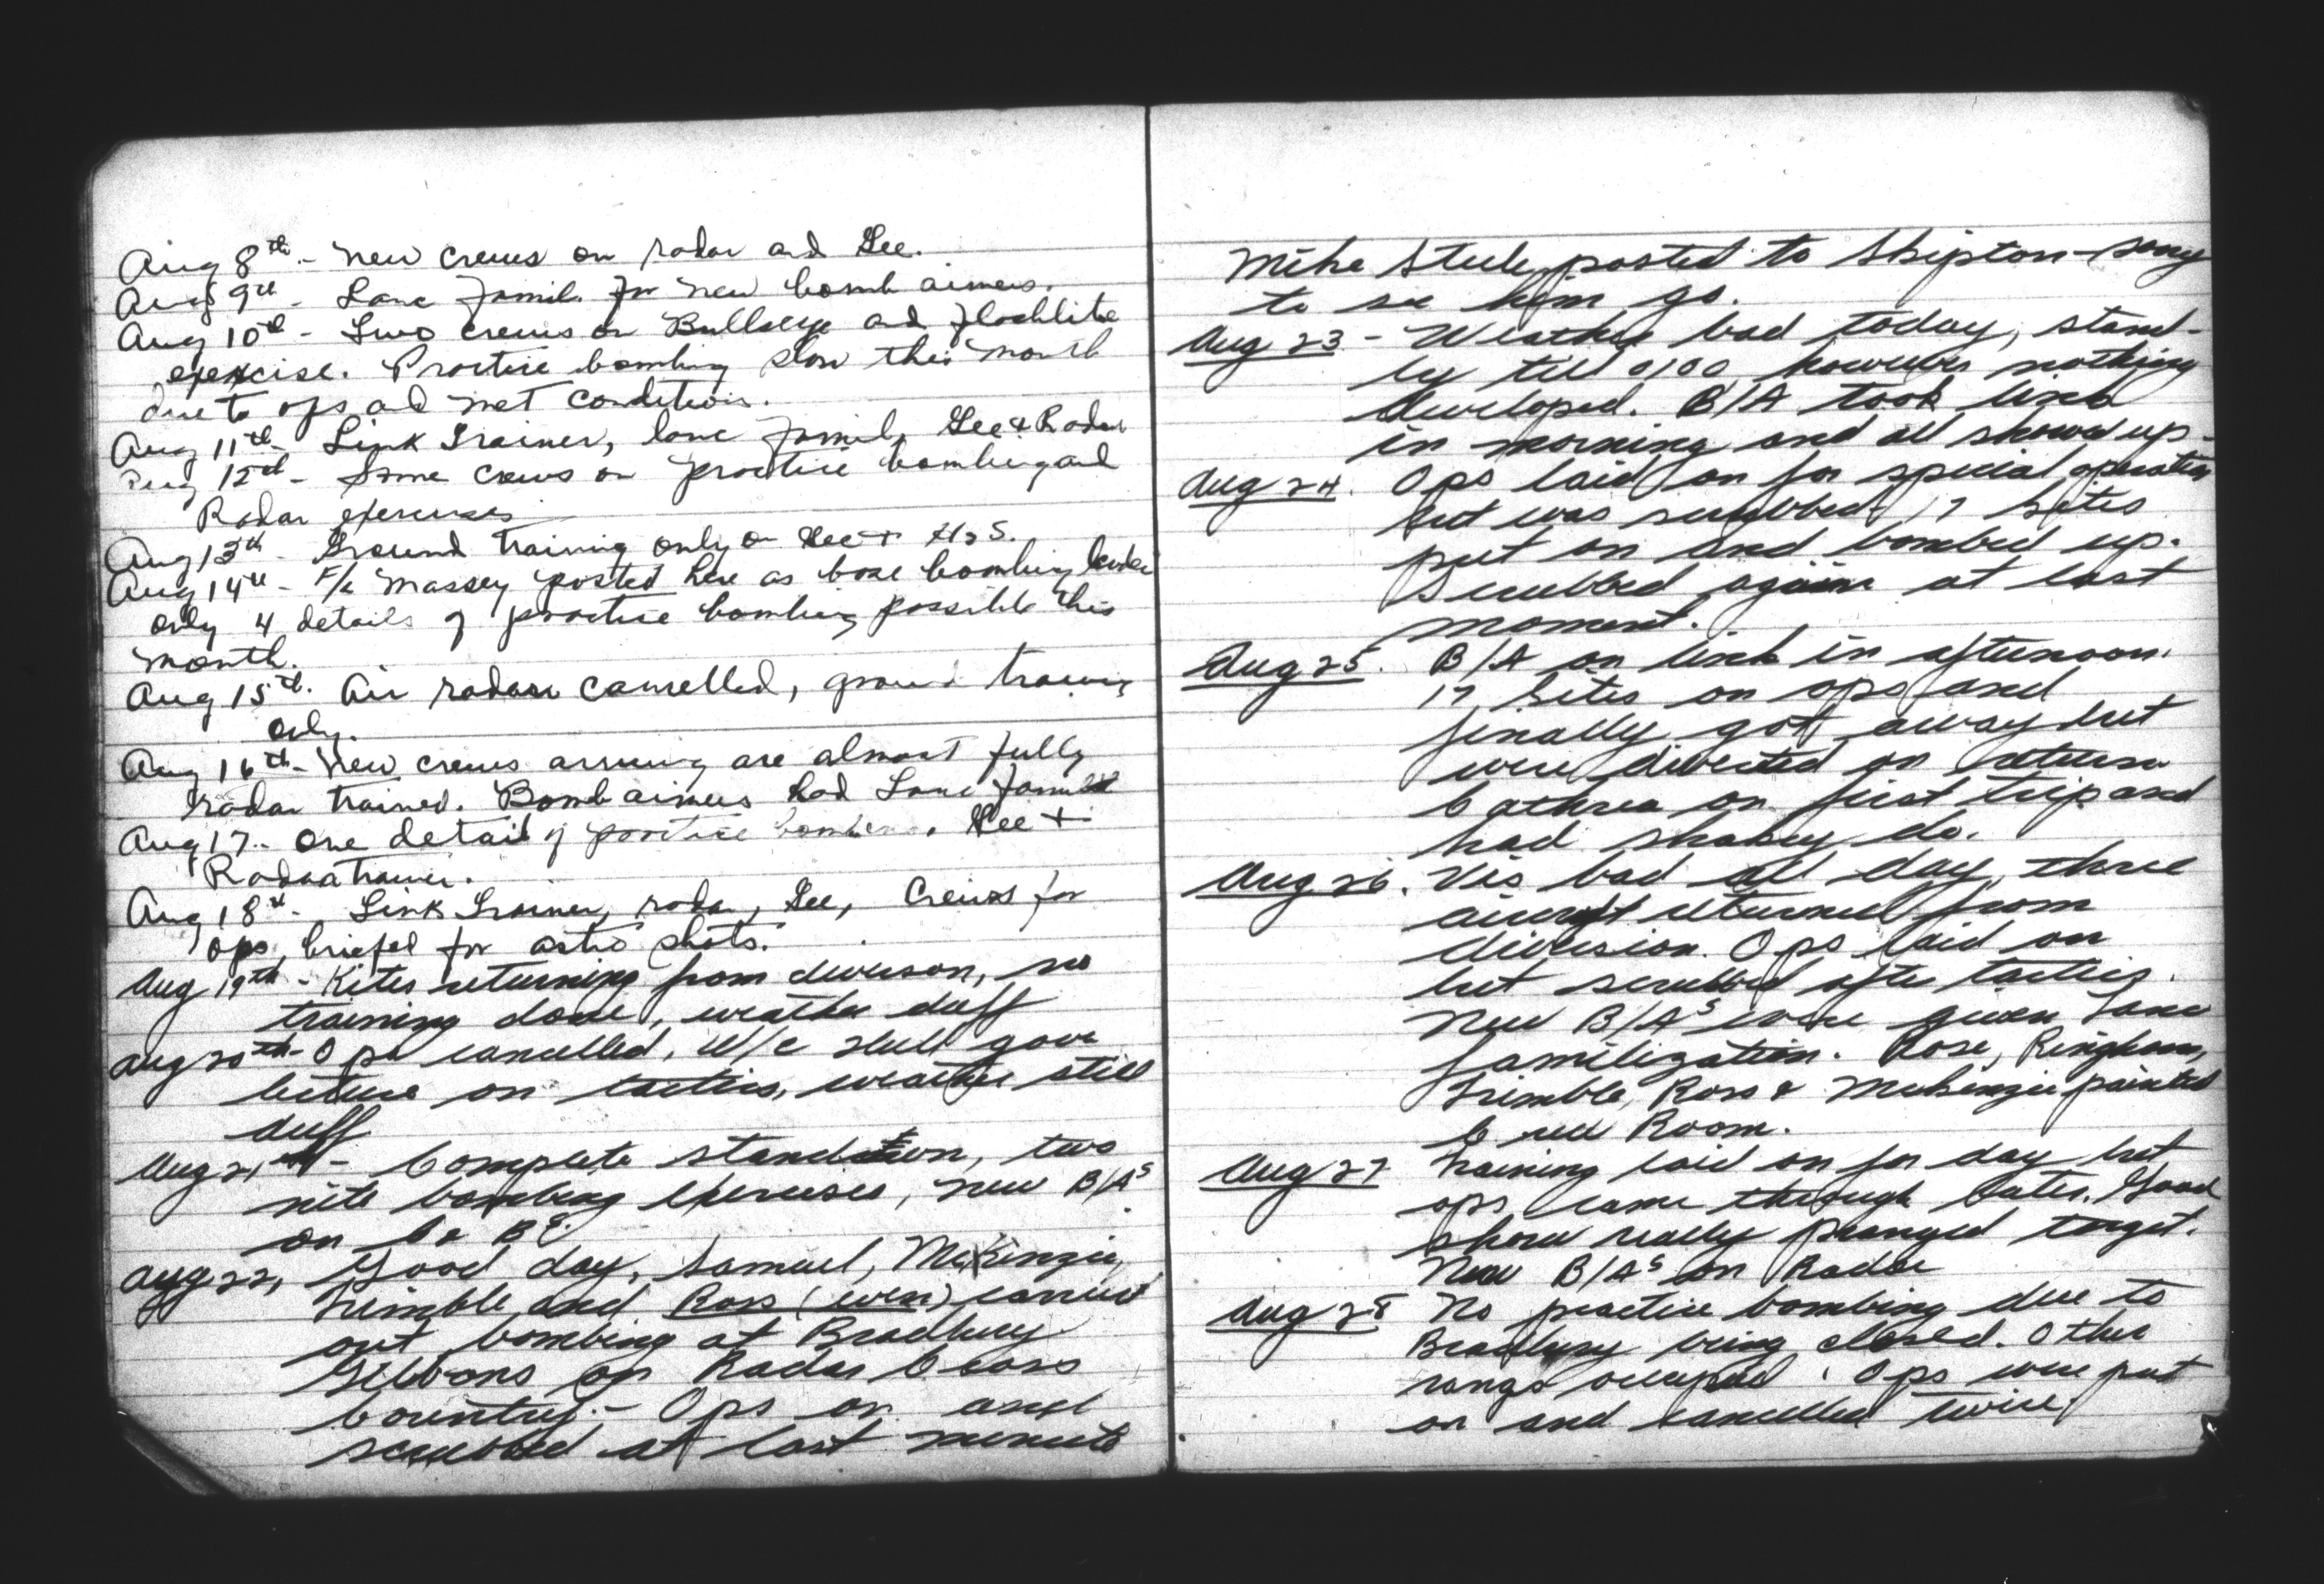 Aug 8th - New crews on radar and Gee.
Aug 9th - Lanc famil. for new bomb aimers.
Aug 10th - Two crews on Bullseye and flashlite
exercise. Practise bombing slow this month
due to ops and met conditions.
Aug 11th - Link Trainer, lanc famil, Gee & Radar
Aug 12th - Some crews on practise bombing and
Radar exercises
Aug 13th - Ground training only on Gee + H2S.
Aug 14th - F/L Massey posted here as base bombing leader
only 4 details of practise bombing possible this
month.
Aug 15th. Air radar cancelled, ground training
only.
Aug 16th - New crews arriving are almost fully
radar trained. Bomb aimers had Lanc famil
Aug 17 - One detail of practise bombing. Gee +
Radar trainer.
Aug 18th - Link Trainer, radar, Gee, Crews for
ops, briefed for astro shots.
Aug 19th - Kites returning from diversion, no
training done, weather duff
Aug 20th - Ops cancelled, W/C gave
lecture on tactics, weather still
duff
Aug 21st - Complete standdown, two
nite bombing exercises, new B/AS
on
Aug 22, Good day, Samuel, McKenzie,
Trimble and Ross (even) carried
out bombing at Bradbury
Gibbons on Radar Cross
Country - Ops on and
scrubbed at last minute
Mike Steele posted to Skipton - sorry
to see him go.
Aug 23 - Weather bad today, stand-
by till 0100 however nothing
developed. B/A took link
in morning and all showed up -
Aug 24. Ops laid on for special operation
but was scrubbed, 17 kites
put on and bombed up.
Scrubbed again at last
moment.
Aug 25. B/A on link in afternoon.
17 kites on ops and
finally got away but
were diverted on return
on first trip and
had shakey do.
Aug 26. Vis bad all day, three
aircraft returned from
diversion. Ops laid on
but scrubbed after tactics.
New B/AS were given Lanc
familization. Rose, Ringham,
Trimble, Ross & McKenzie painted
Crew Room.
Aug 27 Training laid on for day but
ops came through later. Good
show really pranged target.
New B/AS on Radar
Aug 28 No practice bombing due to
Bradbury being closed. Other
range occupied. Ops were put
on and cancelled twice